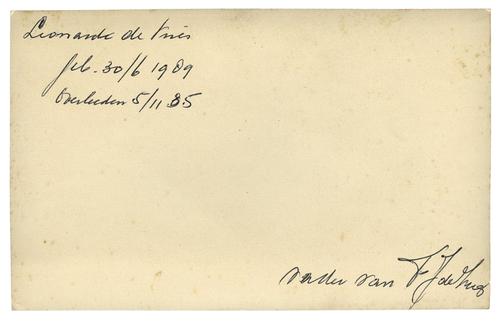 Leonard de Vries
geb. 30/6 1909
Overleden 5/11 85
vader van F J de Vries